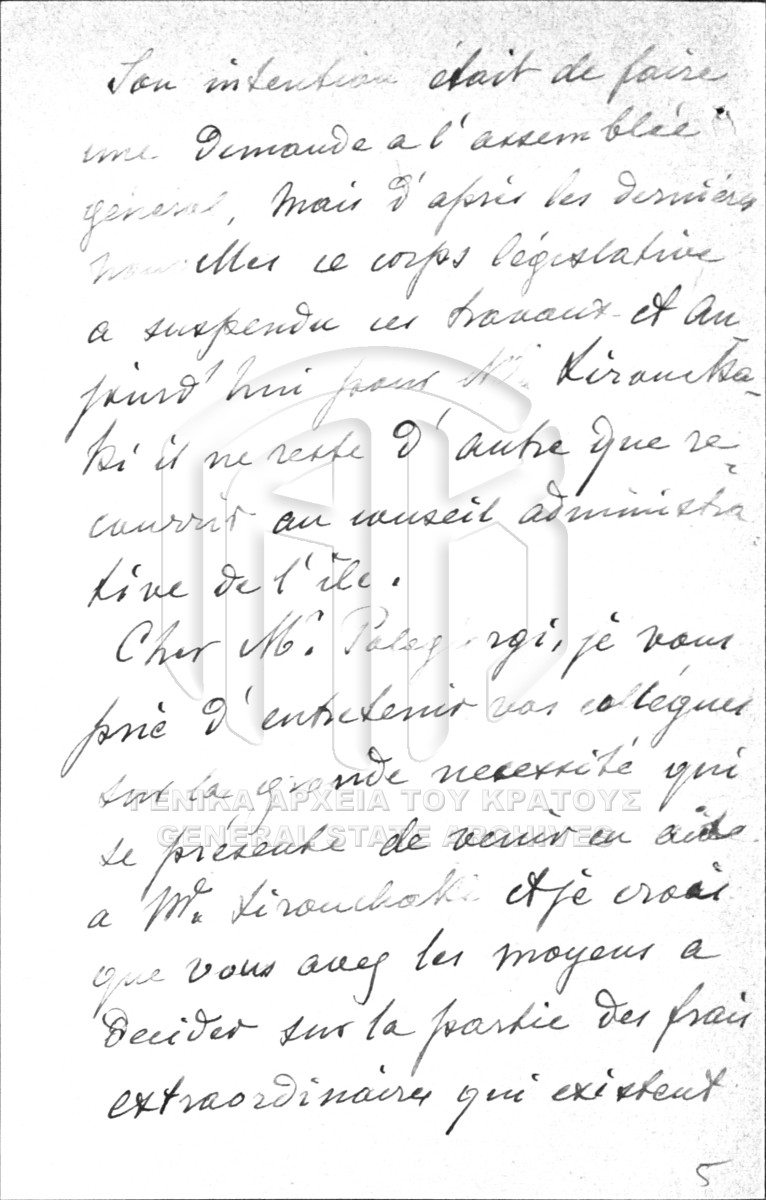 Son intention était de faire
une demande a l'assemblée
général, mais d'après les dernières
nouvelles ce corps législative
a suspendu ces travaux et Au-
jourd'hui pour Mr. Lirouchsa-
ki il ne reste d'autre que re-
courrir au conseil administra-
tive de l'île.
Cher Mr. Palegiorgi, je vous
prie d'entretenir vos collégues
sur la grande necessité qui
se présente de venir en aide
a Mr. Lirouchaki et je crois
que vous avez les moyens a
decider sur la partie des frais
extraordinaires qui existent
5
ΓΕΝΙΚΑ ΑΡΧΕΙΑ ΤΟΥ ΚΡΑΤΟΥΣ
GENERAL STATE ARCHIVES